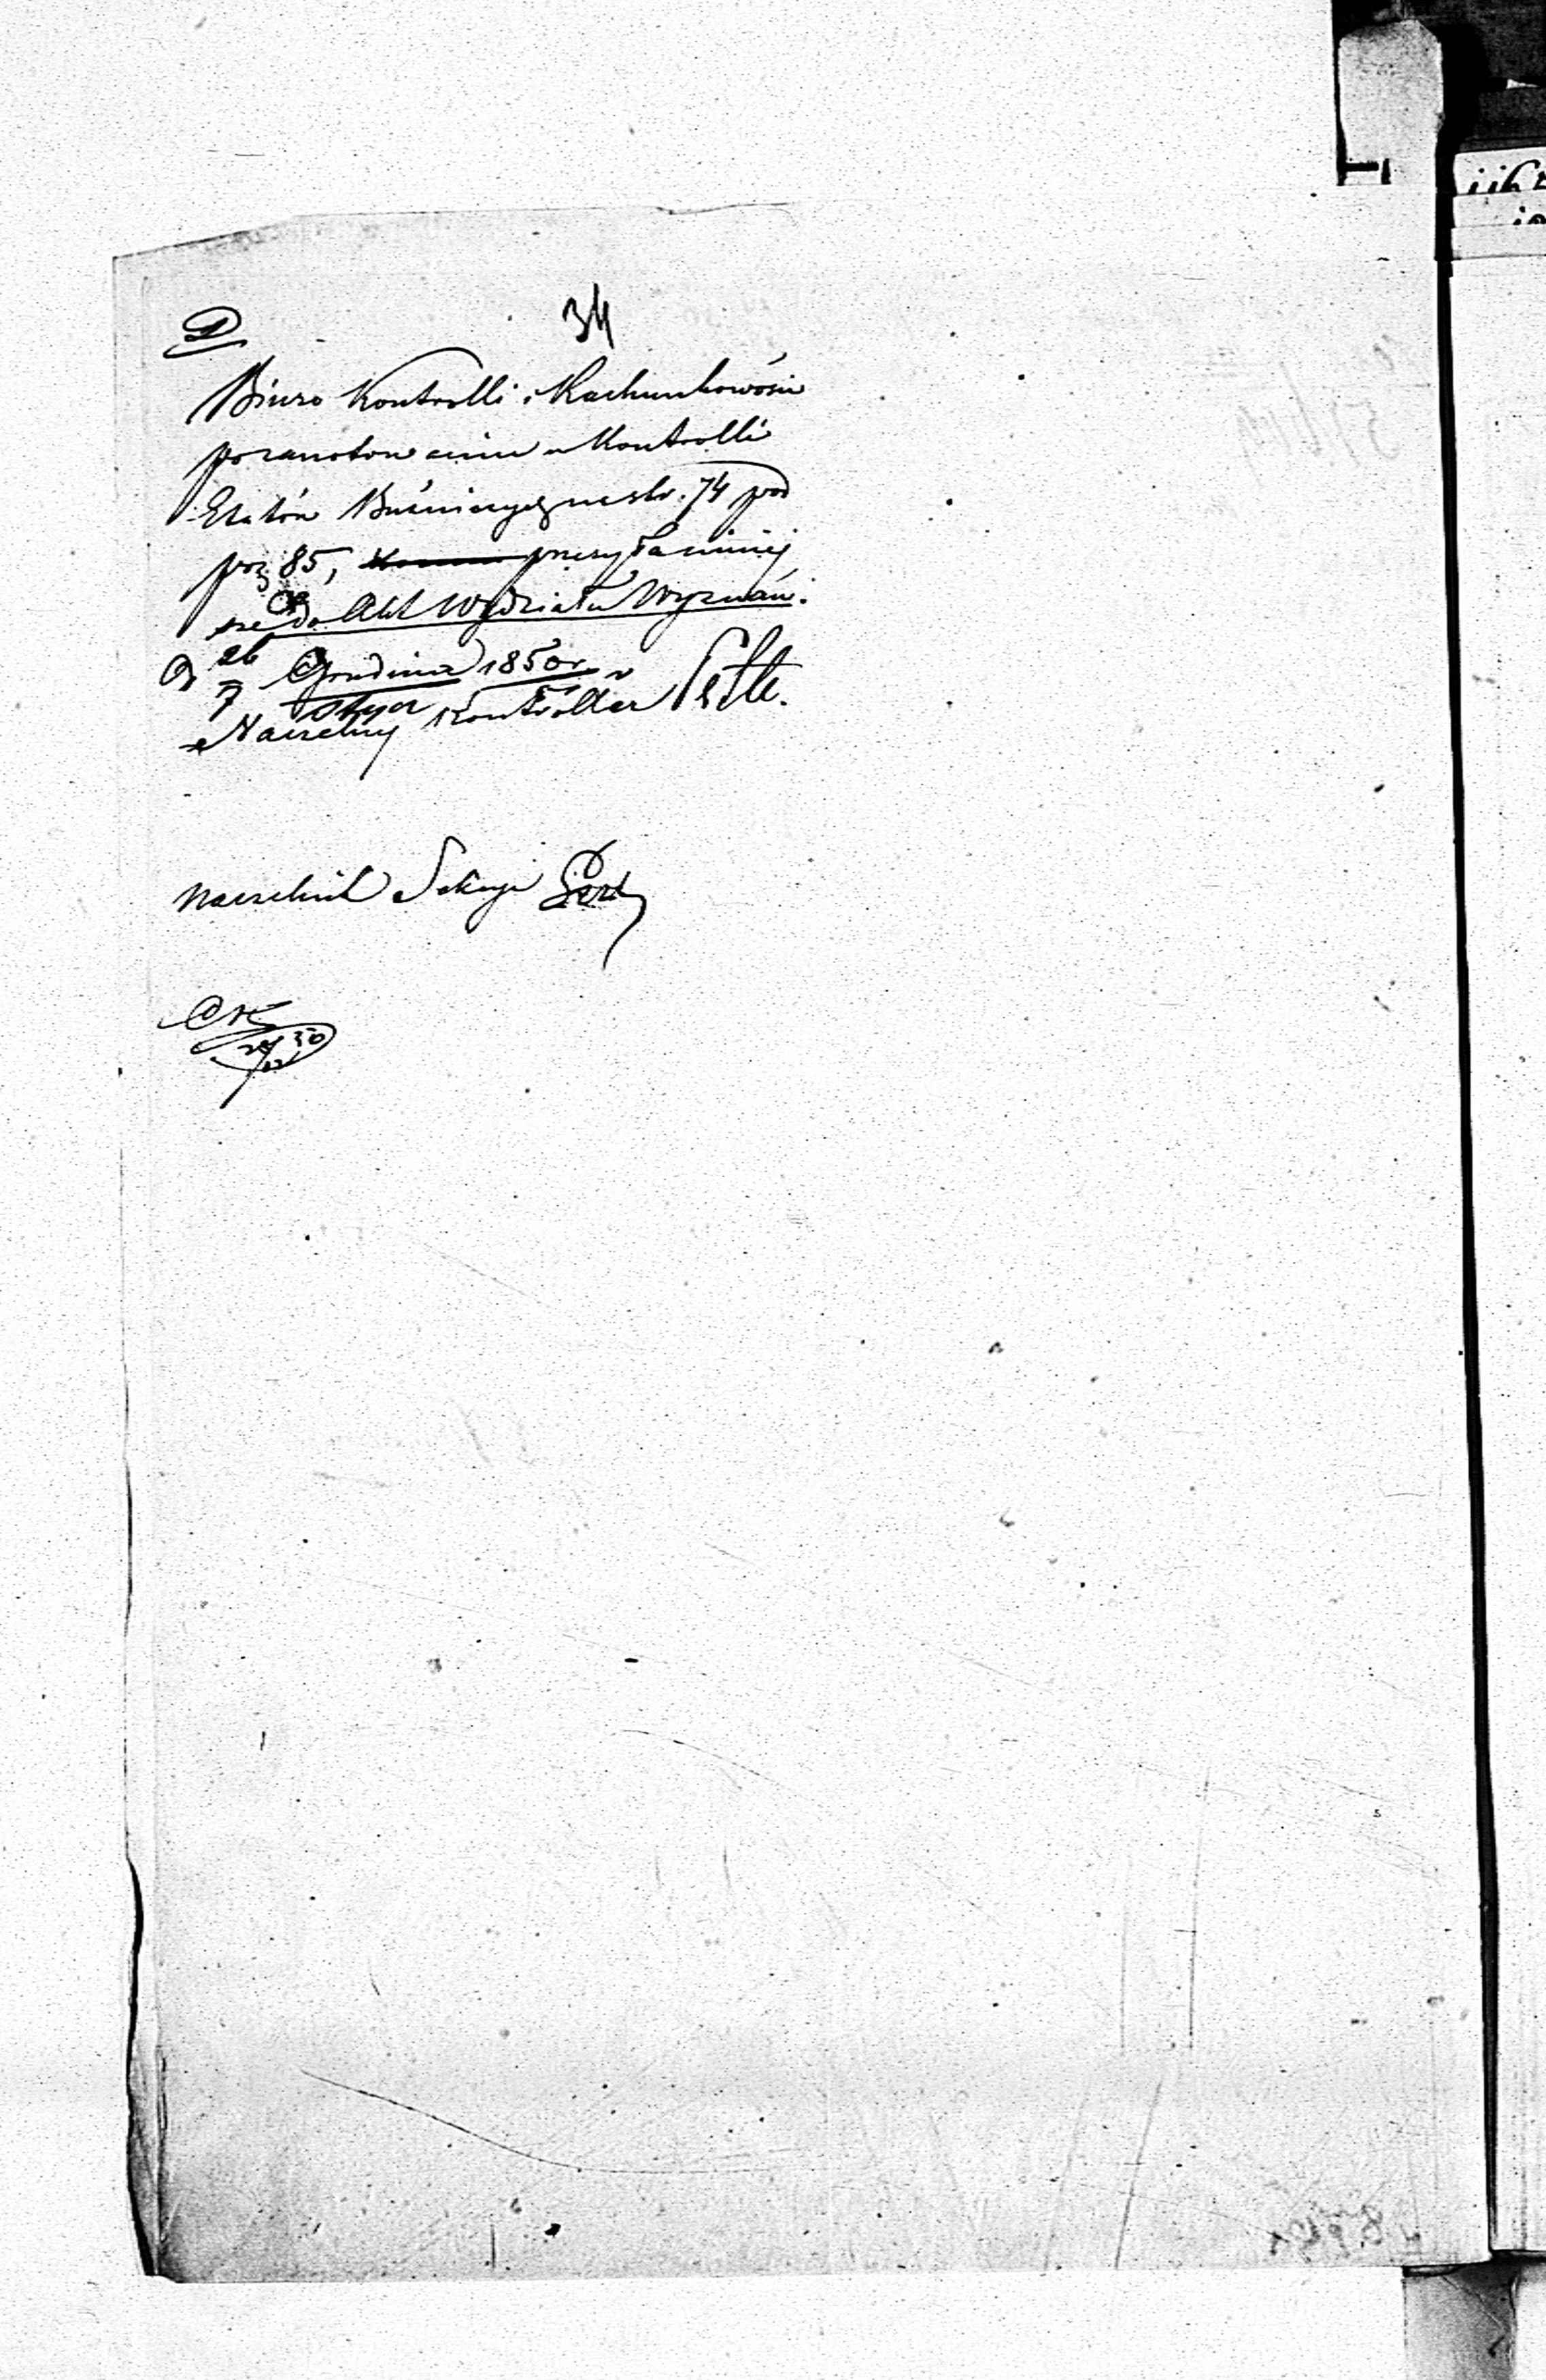 34
Biuro Kontrolli i Rachunkowości
po zanotowaniu w Kontrolli
Etatów Bóżniczych na str. 74 pod
poz 85, przesyła niniej
sze do Akt Wydziału Wyznań.
D 26 Grudnia 1850 r.
7 Stycz
Naczelny Kontroller
Naczelnik Sekcyi